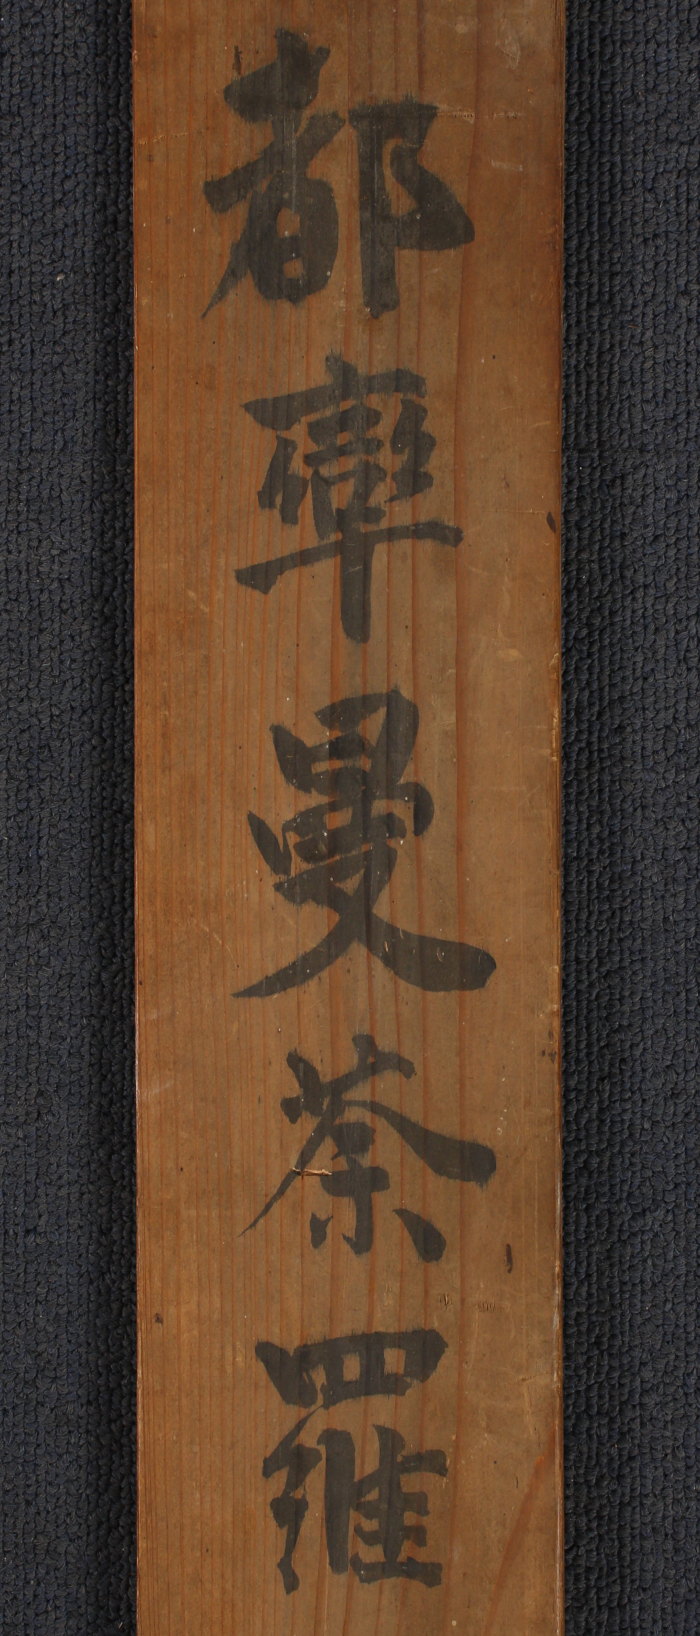 都率曼荼羅